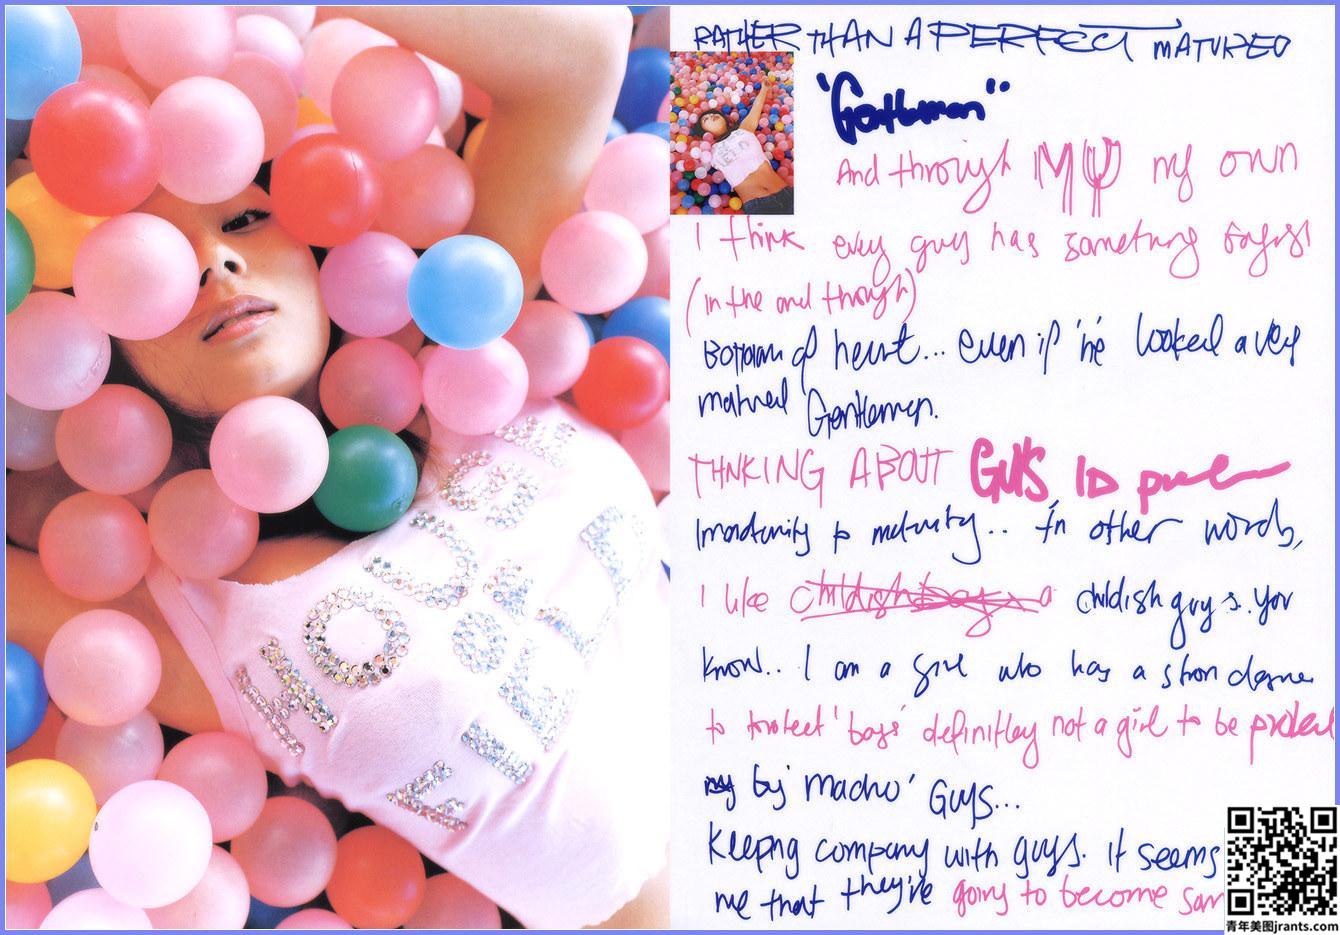 HOUSE
OF
FIELD
RATHER THAN A PERFECT MATURED
"Gentleman"
And through MY my own
I think every guy has something
(in the end though)
Bottom of heart... even if 'he' looked a very
matured Gentleman.
THNKING ABOUT GUYS ID
to maturity.. In other words,
I like childish boys a childish guys.. you
know.. I am a girl who has a stron
to protect 'boys' definitley not a girl to be
my by 'macho' GUYS...
Keeping company with guys. It seems
me that they're going to become
青年美图jrants.com